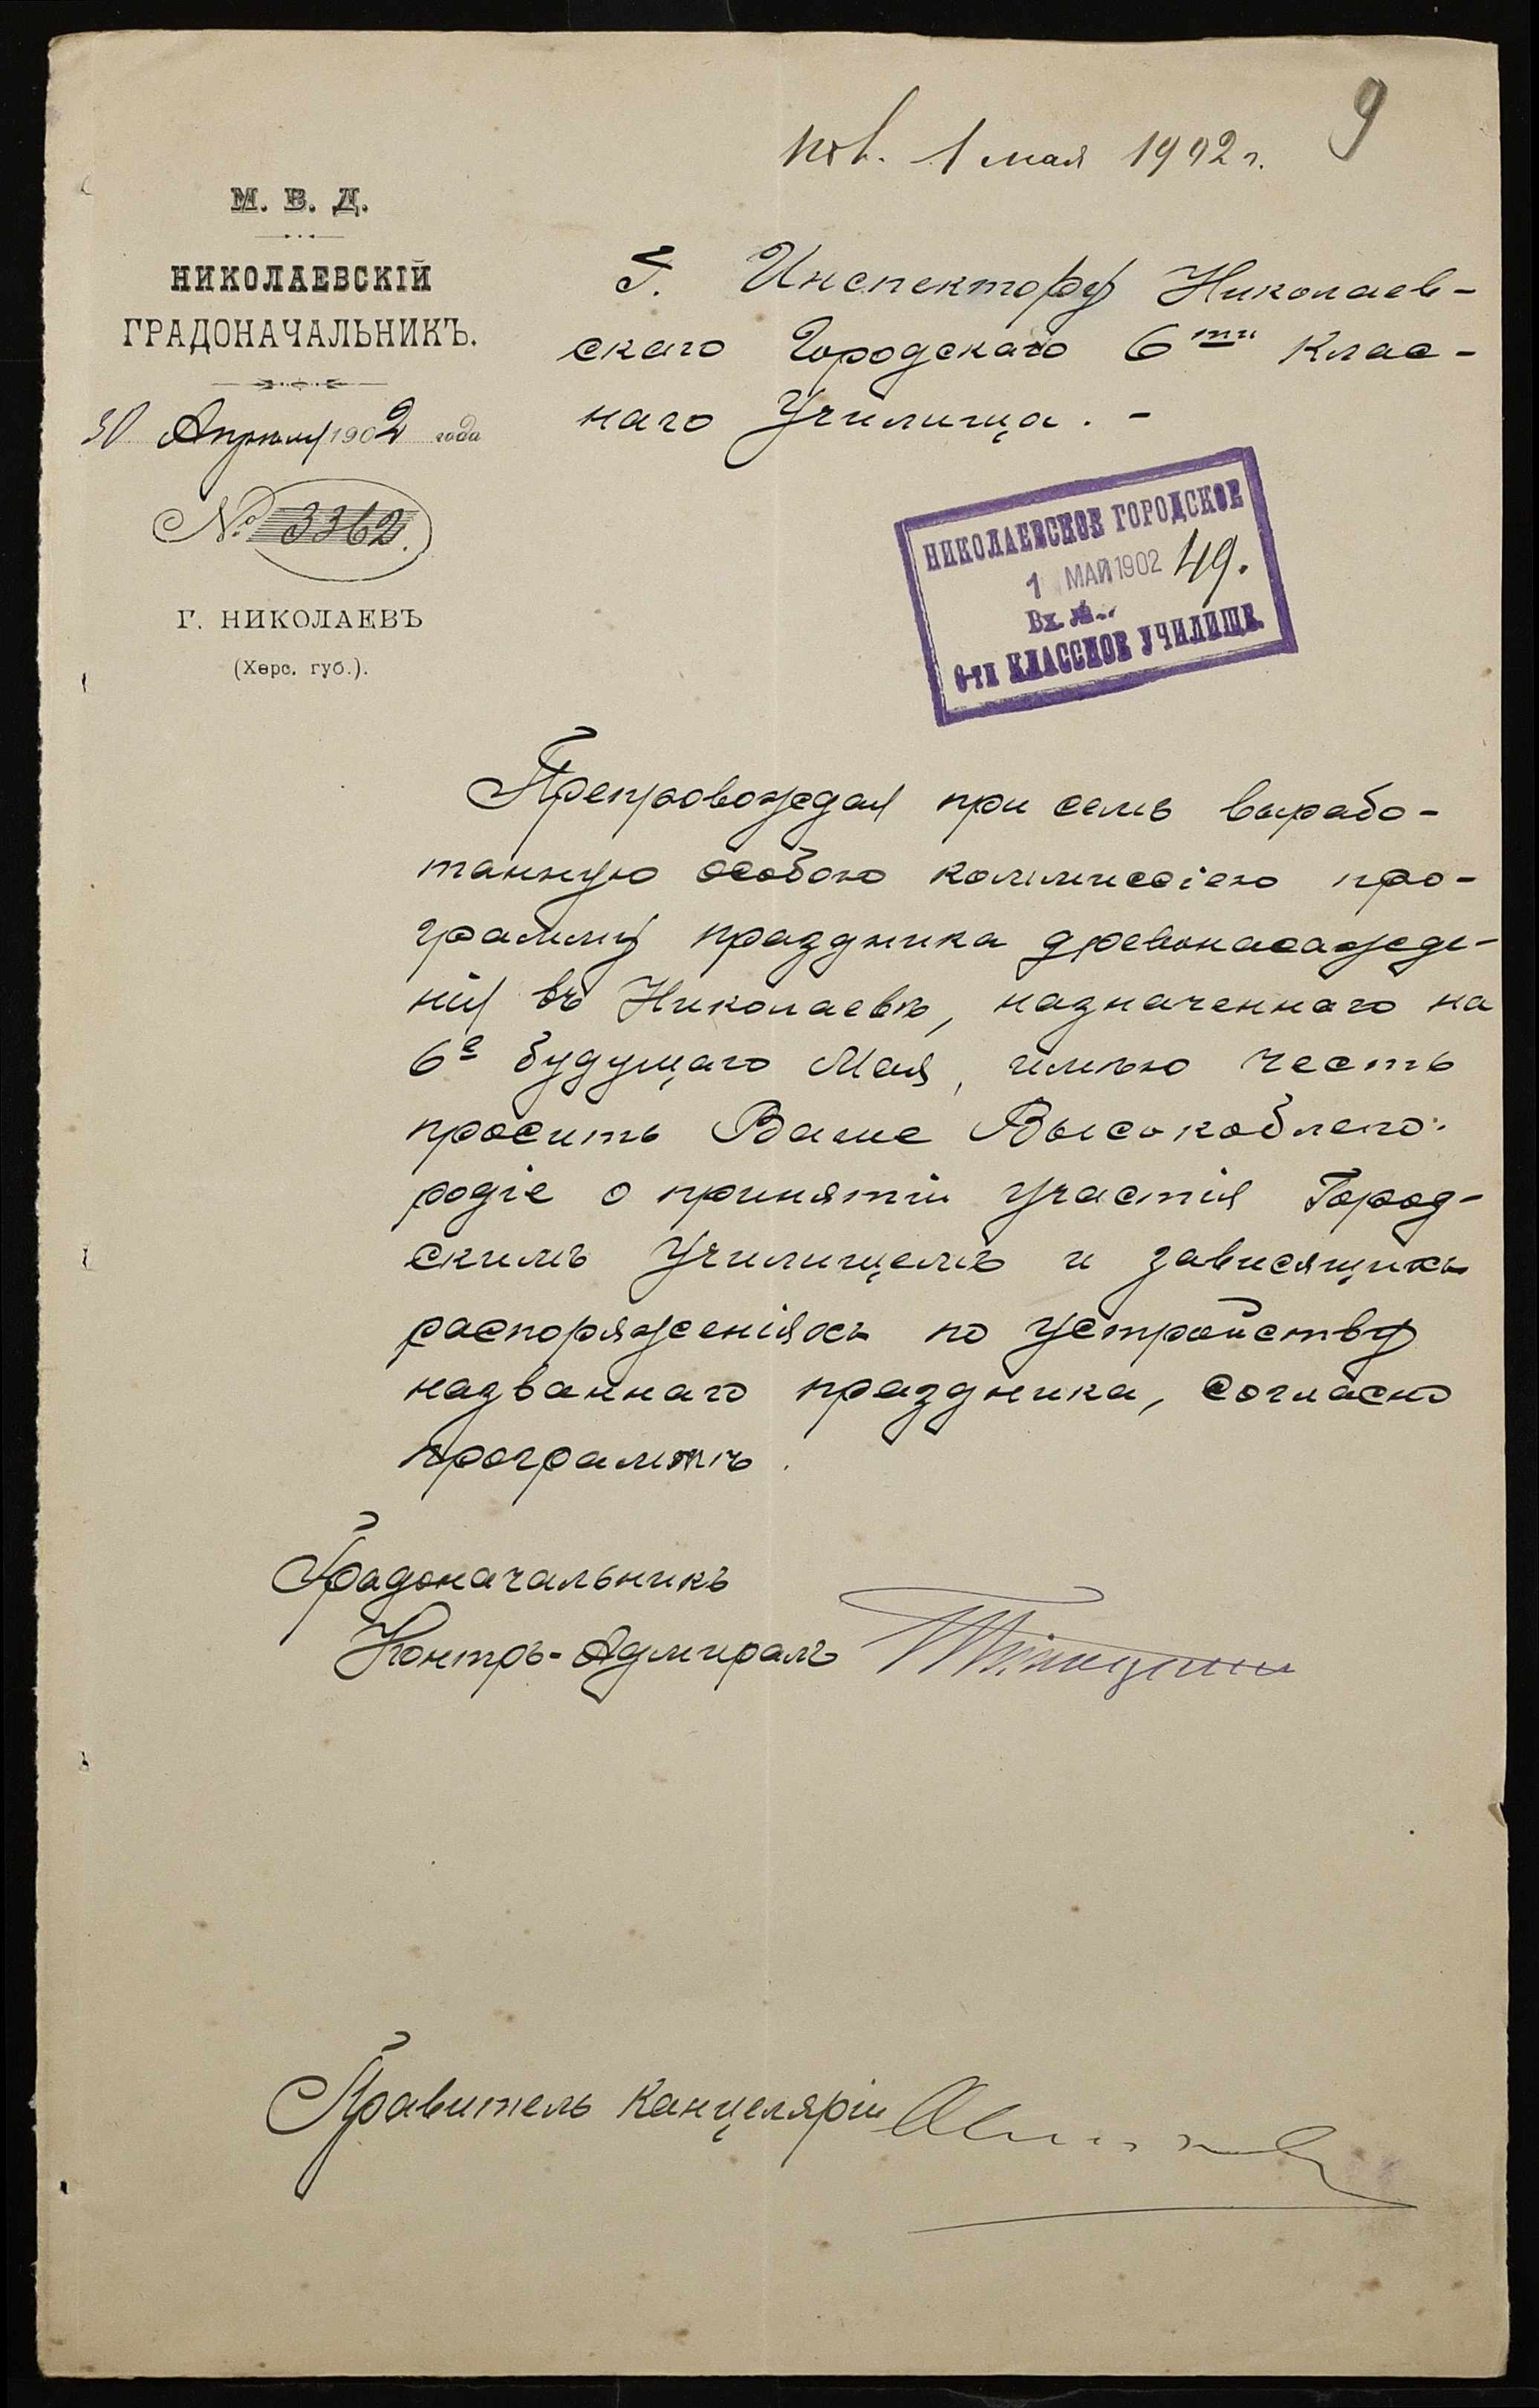 9
1 мая 1902 г.
М. В. Д.
НИКОЛАЕВСКІЙ
ГРАДОНАЧАЛЬНИКЪ.
30 Апрѣля 1902 года
№ 3362.
Г. НИКОЛАЕВЪ
(Херс. губ.).
Г. Инспектору Николаев-
скаго Городскаго 6ти Клас-
наго Училища. -
НИКОЛАЕВСКОЕ ГОРОДСКОЕ
1 МАЙ 1902 49.
Вх. №
6-ти КЛАССНОЕ УЧИЛИЩЕ.
Препровождая при семъ вырабо-
танную особою коммиссіею про-
грамму праздника древонасажде-
нія въ Николаевѣ, назначеннаго на
6е будущаго Мая, имѣю честь
просить Ваше Высокоблаго-
родіе о принятіи участія Город-
скимъ Училищемъ и зависящихъ
распоряженіяхъ по устройству
названнаго праздника, согласно
программѣ.
Градоначальникъ
Контръ-Адмиралъ
Правитель Канцеляріи